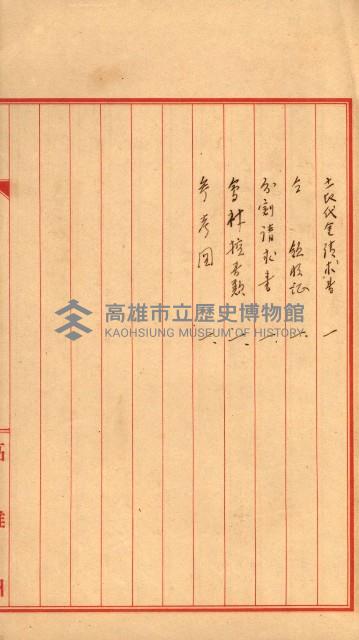 土地代金請求書 一
仝 領収証 〃
分割請求書 〃
参考図 〃
高雄州
高雄市立歷史博物館
KAOHSIUNG MUSEUM OF HISTORY